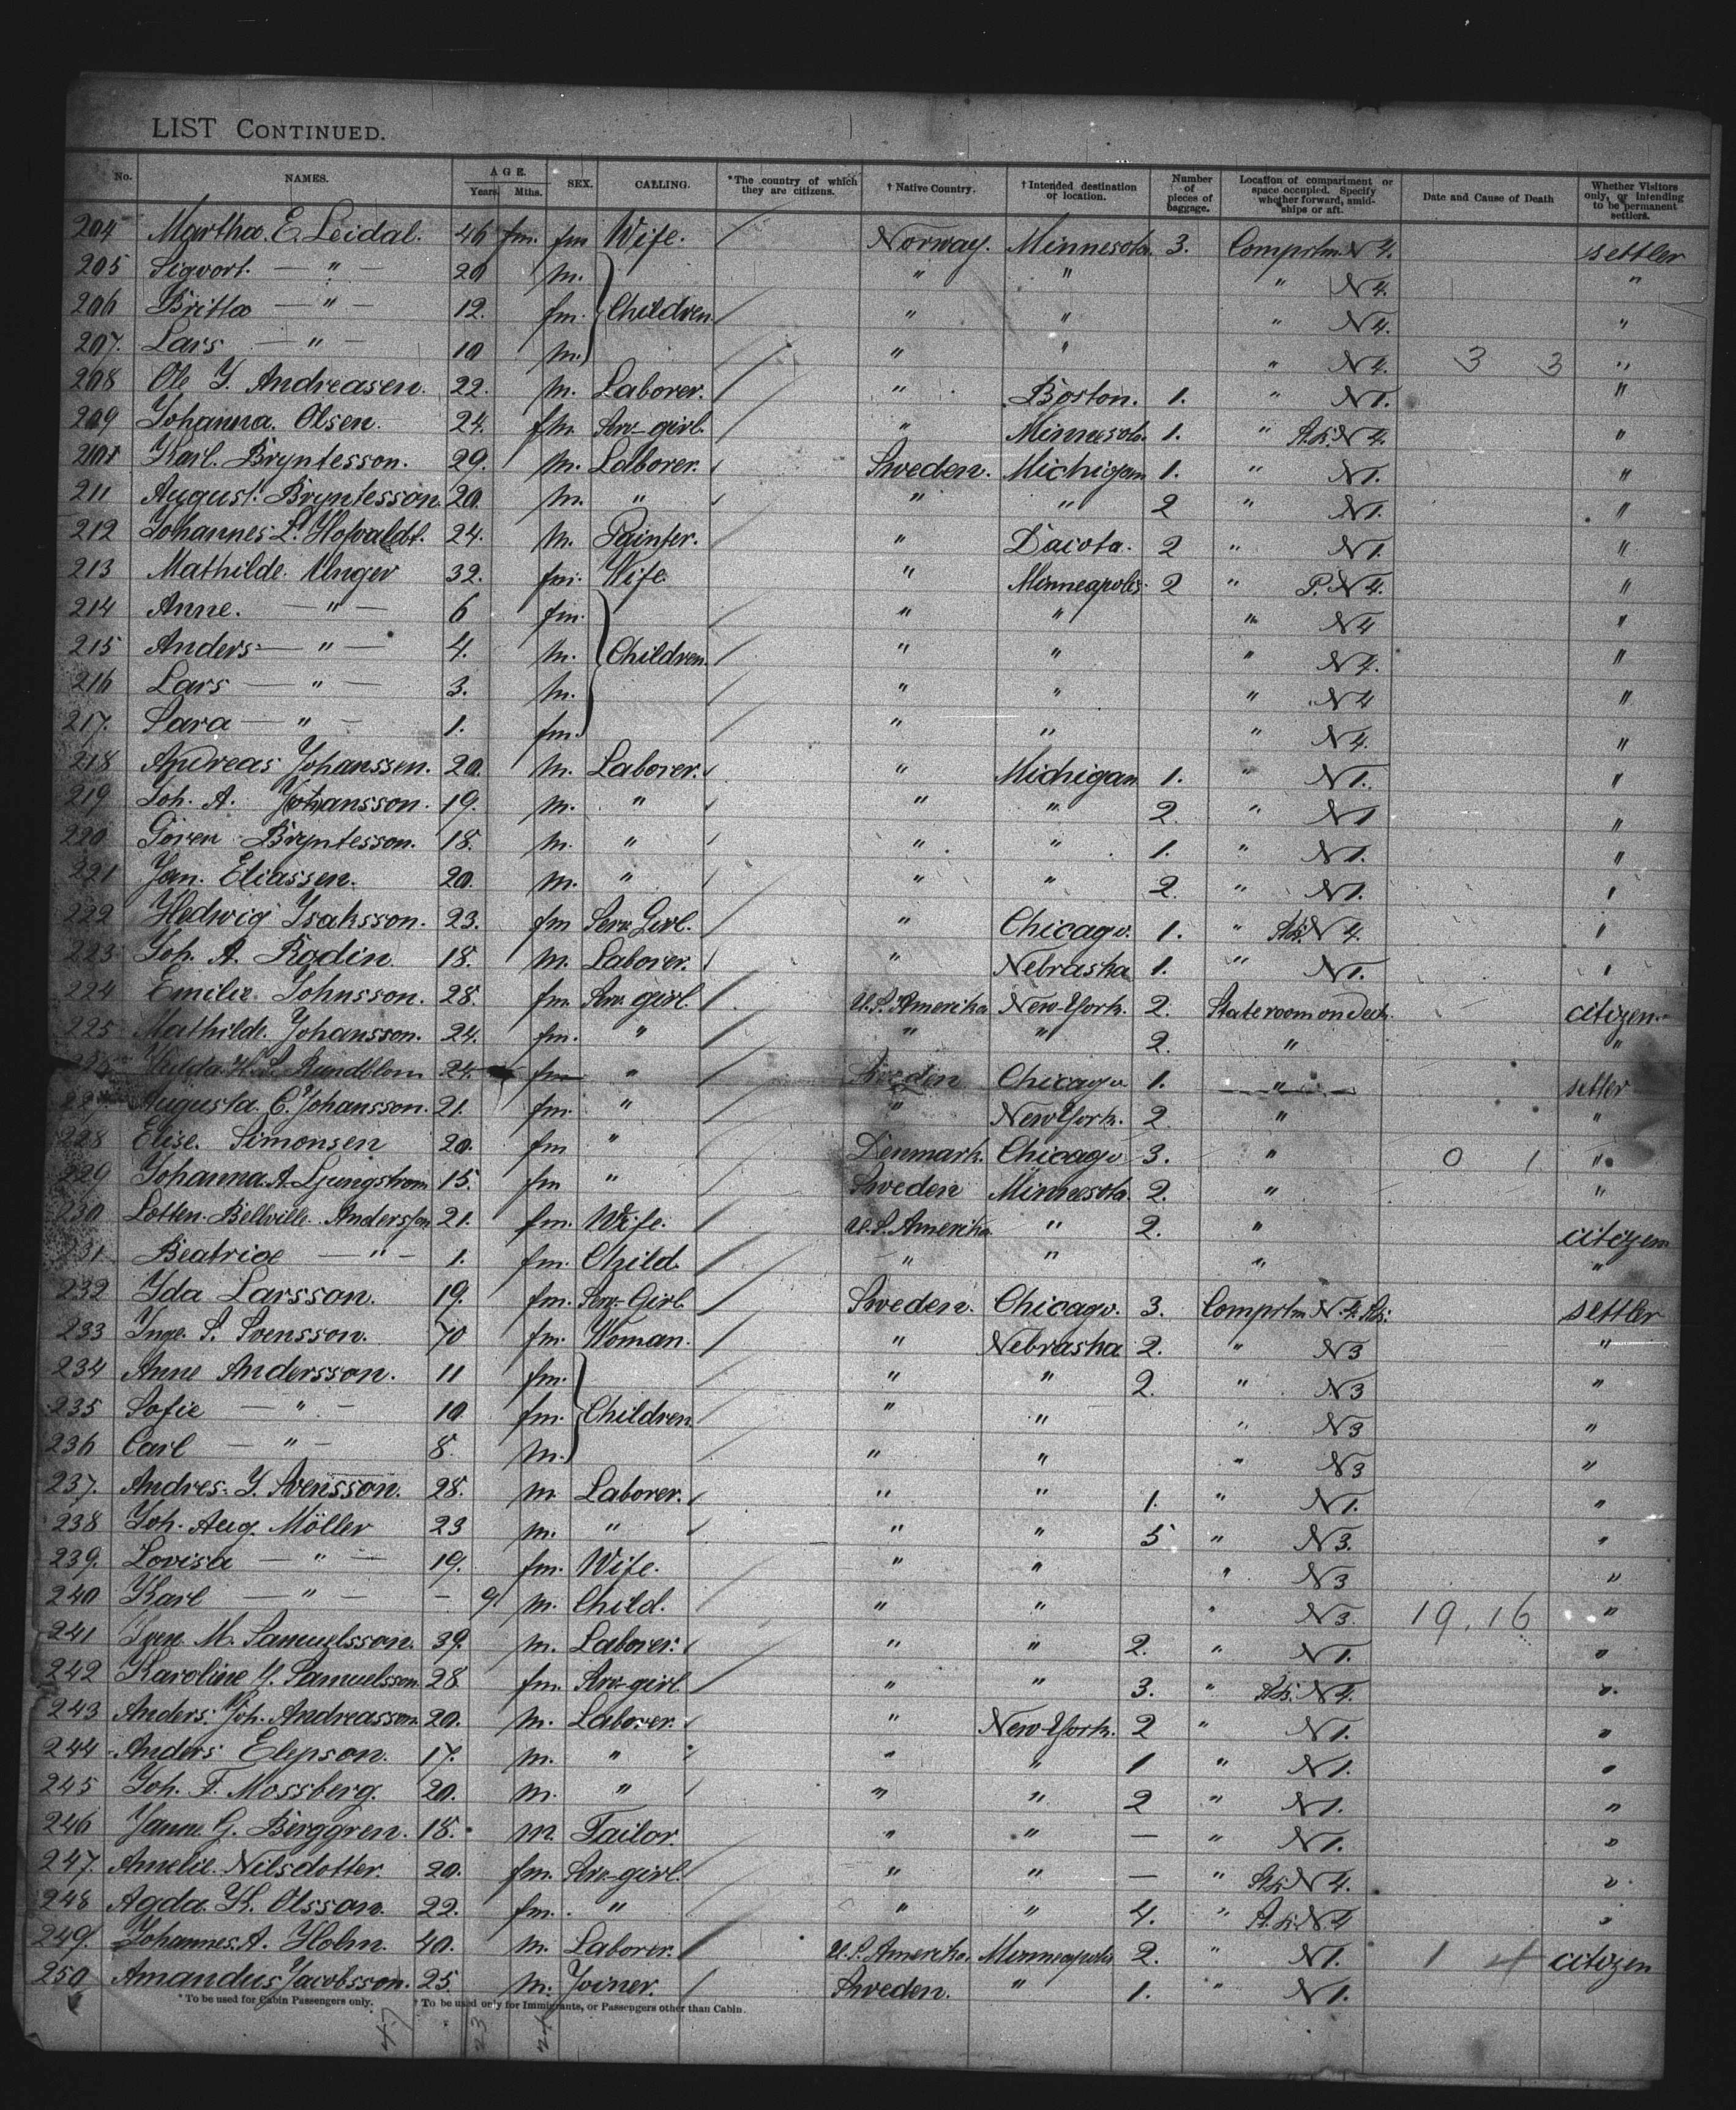 LIST CONTINUED.
No. NAMES. AGE. Years. Mths. SEX. CALLING. *The country of which they are citizens. † Native Country. † Intended destination or location. Number of pieces of baggage. Location of compartment or space occupied. Specify whether forward, amidships or aft. Date and Cause of Death Whether Visitors only, or intending to be permanent settlers.
204 Martha. E. Leidal. 46 fm. fm Wife. Norway. Minnesota. 3. Comprtm. N 4. settler
205 Sigvort. — " — 20 m. " " " N 4. "
206 Britta — " — 12. fm. Children " " " N 4. "
207. Lars — " — 10 m. " " " N 4. 3 3 "
208 Ole Y. Andreasen. 22. m. Laborer. " Boston. 1. " N 1. "
209 Johanna. Olsen. 24. fm. Serv-girl. " Minnesota. 1. " N 4. "
210 Karl. Bryntesson. 29. m. Laborer. Sweden. Michigan 1. " N 1. "
211 August. Bryntesson. 20. m. " " " 2 " N 1. "
212 Johannes L. 24. m. Painter. " Dacota. 2 " N 1. "
213 Mathilde. Unger 32. fm. Wife. " Minneapolis. 2 " P. N 4. "
214 Anne. — " — 6 fm. " " " N 4 "
215 Anders — " — 4. m. Children. " " " N 4. "
216 Lars — " — 3. m. " " " N 4 "
217. Sara — " — 1. fm. " " " N 4. "
218 Andreas Johanssen. 20. m. Laborer. " Michigan 1. " N 1. "
219 Joh. A. Johansson. 19. m. " " " 2. " N 1 "
220 Gören Bryntesson. 18. m. " " " 1. " N 1. "
221 Jan. Eliassen. 20. m. " " " 2. " N 1. "
222 Hedwig Isaksson. 23. fm Serv. Girl. " Chicago. 1. " N 4. "
223 Joh. A. Rodin 18. m. Laborer. " Nebraska 1. " N 1. "
224 Emilie. Johnsson. 28. fm. Serv. girl. U.S. Amerika New-York. 2. State room on Deck. citizen.
225 Mathilde. Johansson. 24. fm. " " " 2. " "
226 Rundblom 24. fm " Sweden Chicago 1. — " — settler
227. Augusta. C. Johansson. 21. fm. " " New York. 2. " "
228 Elise. Simonsen 20. fm " Denmark. Chicago 3. " 0 1 "
229 Johanna. A. Ljungstrom 15. fm " Sweden Minnesota. 2. " "
230 Lotten. Bellville. Andersson 21. fm. Wife. U.S. Amerika " 2. " citizen
231 Beatrice — " — 1. fm. Child. " " " "
232 Ida Larsson. 19. fm. Serv. Girl Sweden. Chicago. 3. Comprtm N. 4. settler
233 Inge. S. Svensson. 70 fm. Woman. " Nebraska 2. " N 3 "
234 Anne Andersson. 11 fm. " " 2. " N 3 "
235 Sofie — " — 10 fm. Children " " " N 3 "
236 Carl — " — 8. m. " " " N 3 "
237. Andres. Y. Svensson. 28. m. Laborer. " " 1. " N 1. "
238 Joh. Aug. Möller 23 m. " " " 5 " N 3. "
239. Lovisa — " — 19. fm. Wife. " " " N 3 "
240 Karl — " — - 9 m. Child. " " " N 3. 19. 16 "
241 Sven M. Samuelsson. 39. m. Laborer. " " 2. " N 1. "
242 Karoline Y. Samuelsson. 28 fm. Serv-girl. " " 3. " N 4. "
243 Anders. Joh. Andreasson 20. m. Laborer. " New-York. 2 " N 1. "
244 Anders Elepson. 17. m. " " " 1 " N 1. "
245 Joh. F. Mossberg. 20. m. " " " 2 " N 1. "
246 G. Berggren. 18. m. Tailor. " " — " N 1. "
247. Amelie. Nilsdotter. 20. fm. Serv-girl. " " — " N 4. "
248 Agda. K. Olsson. 22. fm. " " " 4. " N 4 "
249. Johannes. A. Holm. 40. m. Laborer. U.S. Amerika. Minneapolis 2. " N 1. 1 4 citizen
250 Amandus Jacobsson. 25. m. Joiner. Sweden. " 1. " N 1.
*To be used for Cabin Passengers only. † To be used only for Immigrants, or Passengers other than Cabin.
47 23 24